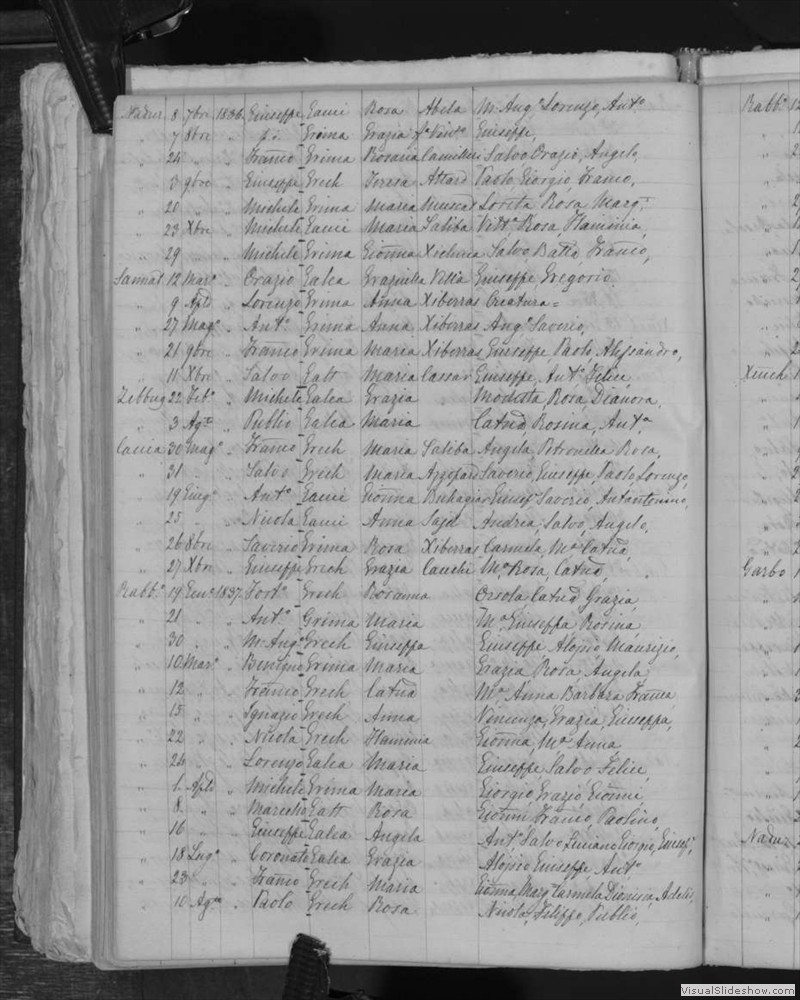 Nadur 8 7bre 1836 Giuseppe Gauci Rosa Abela Mo Augo Lorenzo, Anto
" 7 8bre " Grima Grazia Giuseppe,
" 24 " " Franco Grima Rosaria Camilleri Salvo Orazio, Angelo,
" 3 9bre " Giuseppe Grech Teresa Attard Paolo Giorgio, Franco,
" 20 " " Michele Grima Maria Muscat Loreta Rosa
" 23 Xbre " Michele Gauci Maria Saliba Rosa, Flaminia,
" 29 " " Michele Grima Gionna Xicluna Salvo Batta, Franco,
Sannat 12 Maro " Orazio Galea Graziulla Vella Giuseppe Gregorio,
" 9 Aple " Lorenzo Grima Anna Xiberras Creatura =
" 27 Mago " Anto Grima Anna Xiberras Augo Saverio,
" 21 9bre " Franco Grima Maria Xiberras Giuseppe, Paolo Alessandro,
" 11 Xbre " Salvo Gatt Maria Cassar Giuseppe, Anto Felice,
Zebbug 22 Feb " Michele Galea Grazia " Modesta, Rosa, Dianora,
" 3 Ago " Publio Galea Maria Catna, Rosina, Anta
Caccia 30 Mago " Franco Grech Maria Saliba Angela, Petronilla, Rosa,
" 31 " " Salvo Grech Maria Azzopard Saverio, Giuseppe, Paolo, Lorenzo,
" 19 Giugo " Anto Gauci Gionna Buhagiar Giusep Saverio, Antantonino,
" 25 " " Nicola Gauci Anna Said Andrea, Salvo, Angelo,
" 26 8bre " Saverio Grima Rosa Xiberras Carmela, Ma Catna,
" 27 Xbre " Giuseppe Grech Grazia Cauchi Ma Rosa, Catna,
Rabbo 19 Geno 1837 Forto Grech Rosanna Orsola Catna Grazia,
" 21 " " Anto Grima Maria Ma Giuseppa Rosina,
" 30 " " Mo Augo Grech Giuseppa Giuseppe Aloisio Maurizio,
" 10 Maro " Benigno Grima Maria Grazia Rosa Angela,
" 12 " " Franco Grech Catna Ma Anna Barbara Franca,
" 15 " " Ignazio Grech Anna Vincenza, Grazia, Giuseppa,
" 22 " " Nicola Grech Flaminia Gionna, Ma Anna,
" 24 " " Lorenzo Galea Maria Giuseppe Salvo Felice,
" 1 Aple " Michele Grima Maria Giorgio, Grazio, Gionni,
" 8 " " Gatt Rosa Gionni Franco, Paolino,
" 16 " " Giuseppe Galea Angela Anto Salvo Luciano Giorgio, Giusep,
" 18 Lugo " Coronato Galea Grazia Aloisio Giuseppe Anto
" 23 " " Franco Grech Maria Gionna, Carmela Dionisia, Adele,
" 10 Ago " Paolo Grech Rosa Nicola, Filippo, Publio,
Rabbo
Xeuch
Garbo
Nadur
VisualSlideshow.com